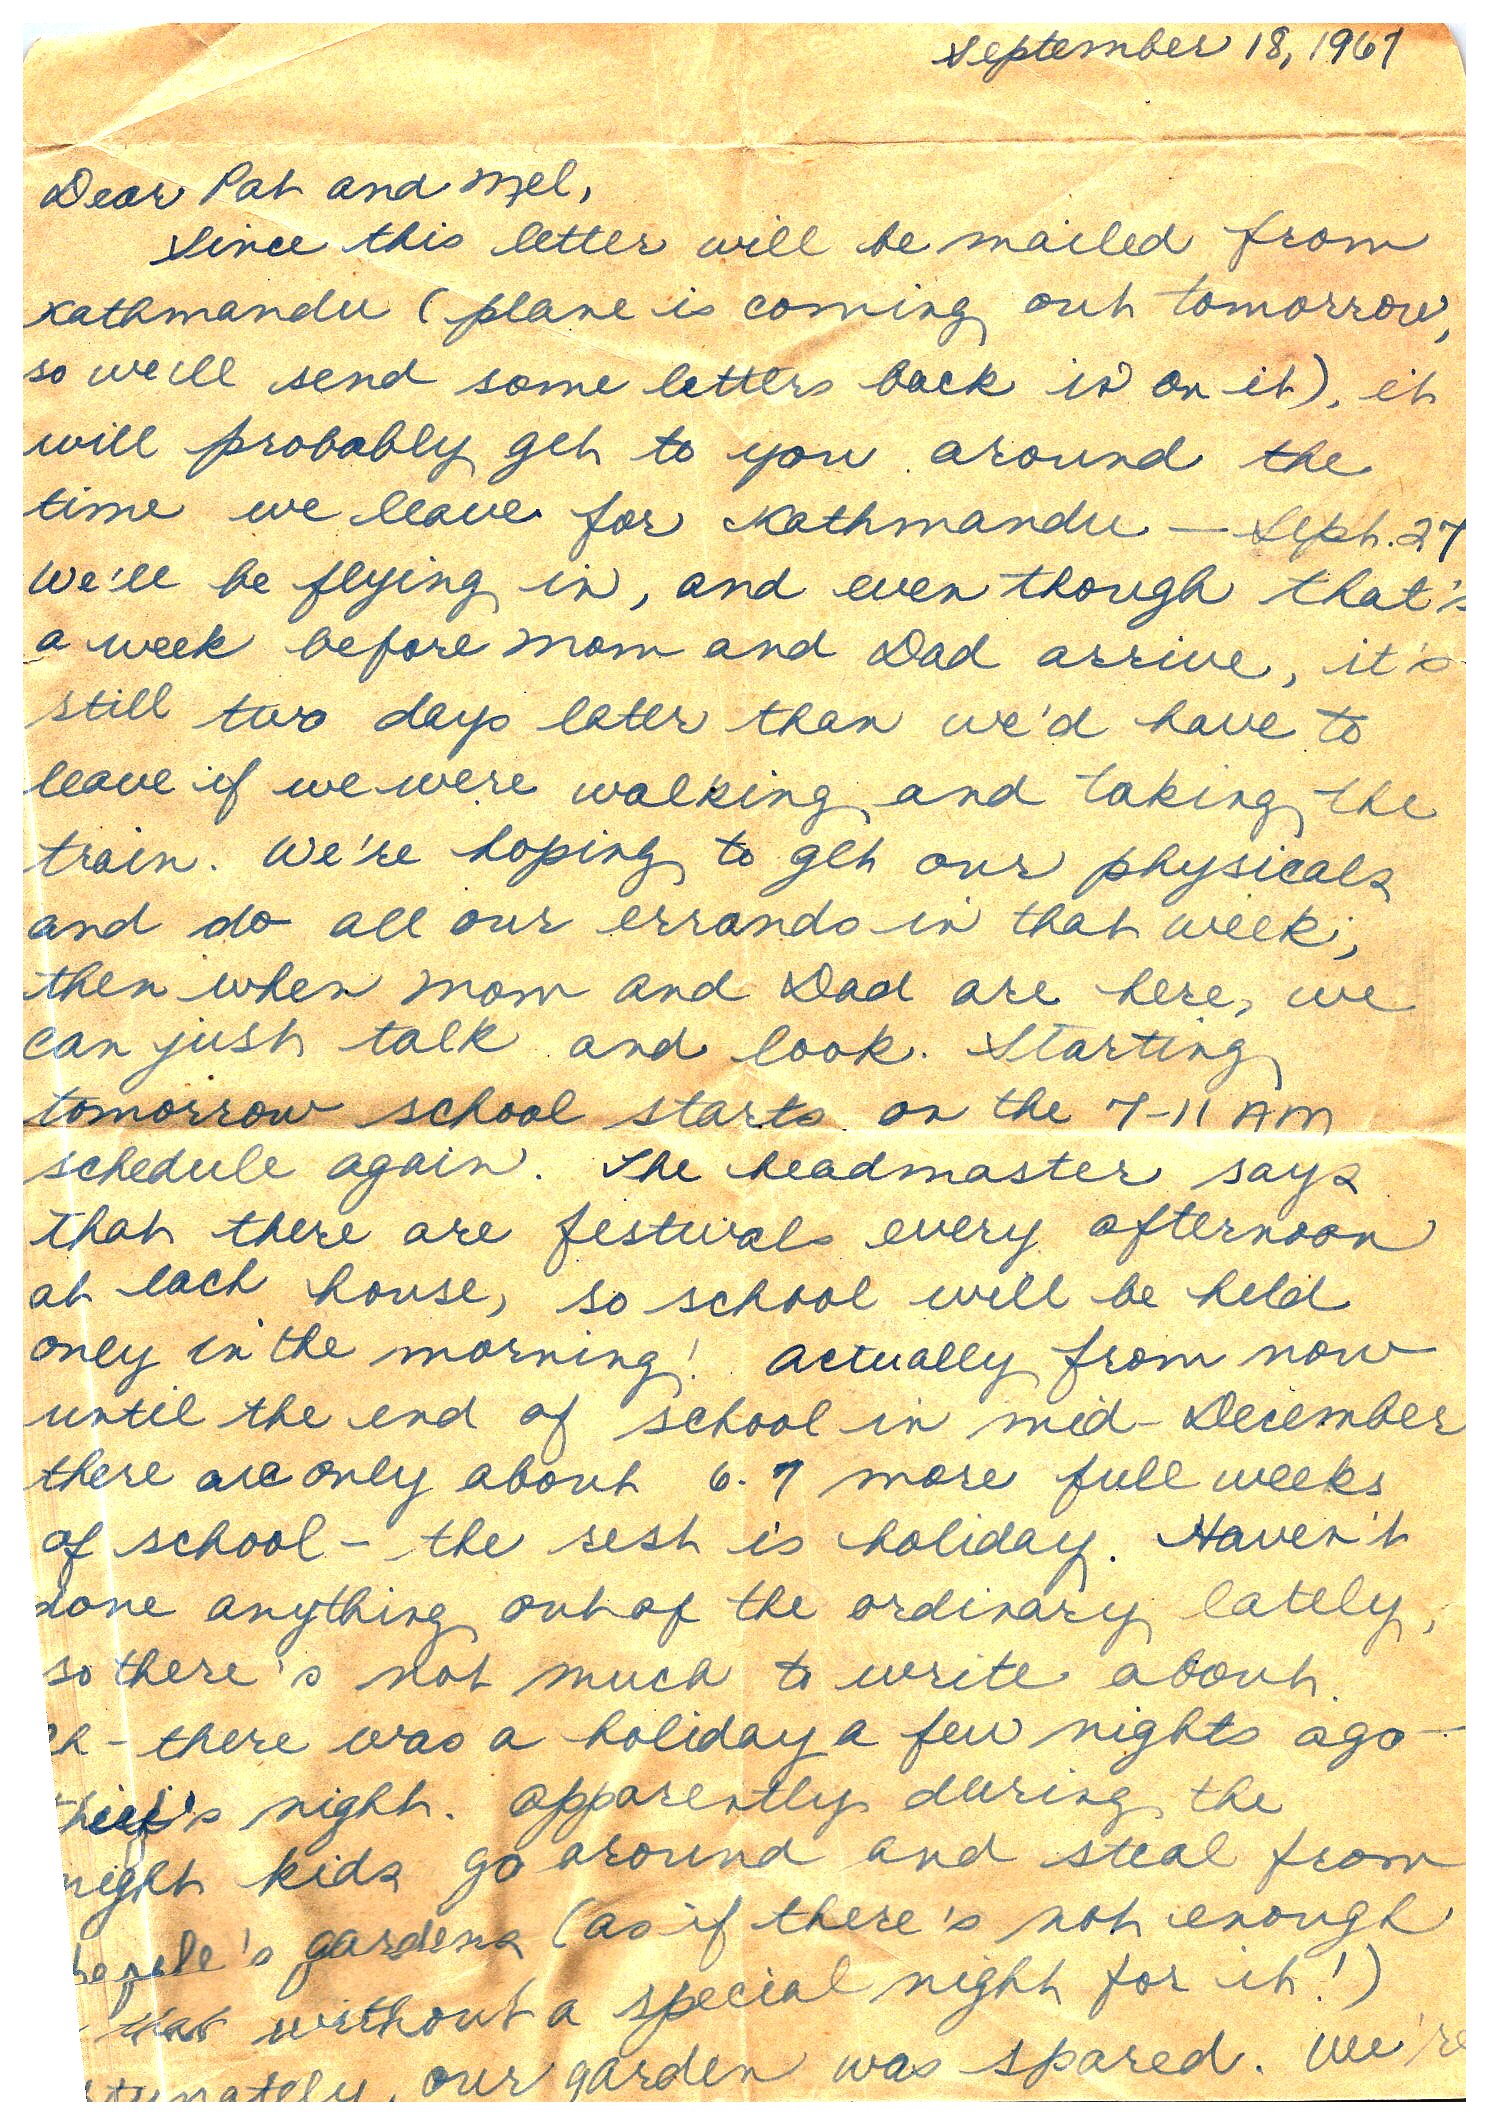 September 18, 1967
Dear Pat and Mel,
Since this letter will be mailed from
Kathmandu (plane is coming out tomorrow,
so we'll send some letters back in on it), it
will probably get to you around the
time we leave for Kathmandu — Sept. 27
We'll be flying in, and even though that's
a week before Mom and Dad arrive, it's
still two days later than we'd have to
leave if we were walking and taking the
train. We're hoping to get our physicals
and do all our errands in that week;
then when Mom and Dad are here, we
can just talk and look. Starting
tomorrow school starts on the 7-11 AM
schedule again. The headmaster says
that there are festivals every afternoon
at each house, so school will be held
only in the morning! Actually from now
until the end of school in mid-December
there are only about 6-7 more full weeks
of school - the rest is holiday. Haven't
done anything out of the ordinary lately,
so there's not much to write about.
- there was a holiday a few nights ago -
thief's night. Apparently during the
night kids go around and steal from
people's gardens (as if there's not enough
that without a special night for it!)
our garden was spared. We're